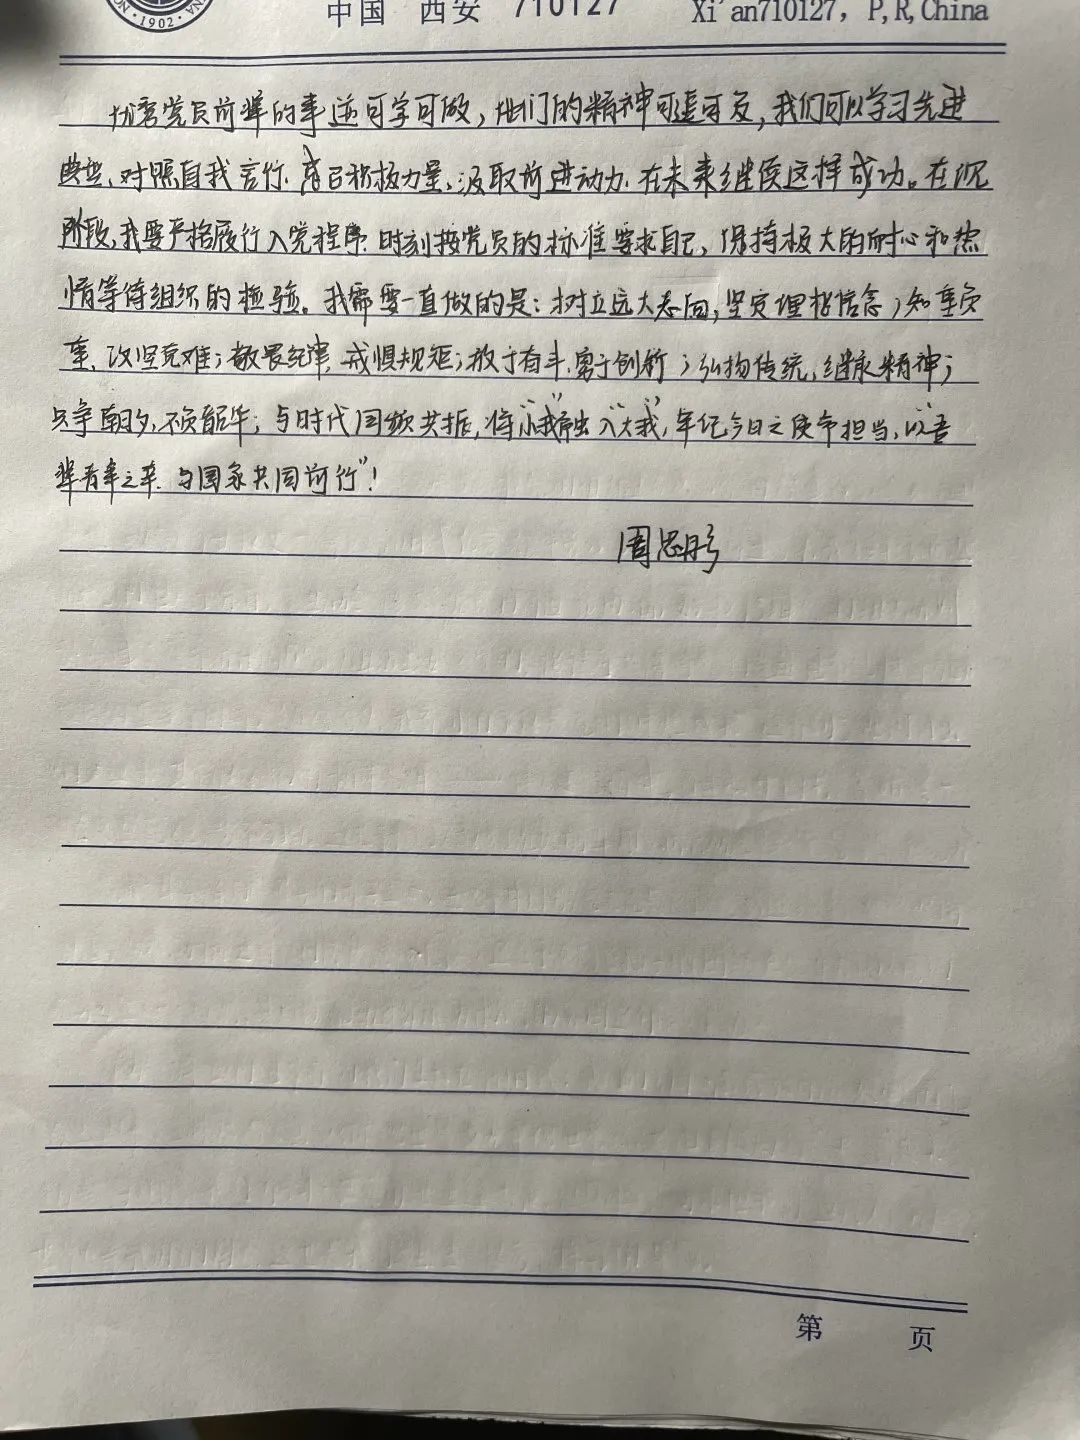 ·1902·
中国 西安 710127
Xi'an710127, P,R,China
优秀党员前辈的事迹可学可做，他们的精神可追可及，我们可以学习先进
典型、对照自我言行、感召积极力量、汲取前进动力、在未来继续这样成功。在现
阶段，我要严格履行入党程序、时刻按党员的标准要求自己，保持极大的耐心和热
情等待组织的检验。我需要一直做的是：树立远大志向，坚定理想信念；知重负
重、攻坚克难；敬畏纪律，戒惧规矩；敢于奋斗、勇于创新；弘扬传统，继承精神；
只争朝夕，不负韶华；与时代同频共振，将“小我”融入“大我”，牢记今日之使命担当，以“吾
辈青年之年、与国家共同前行”！
周思彤
第 页